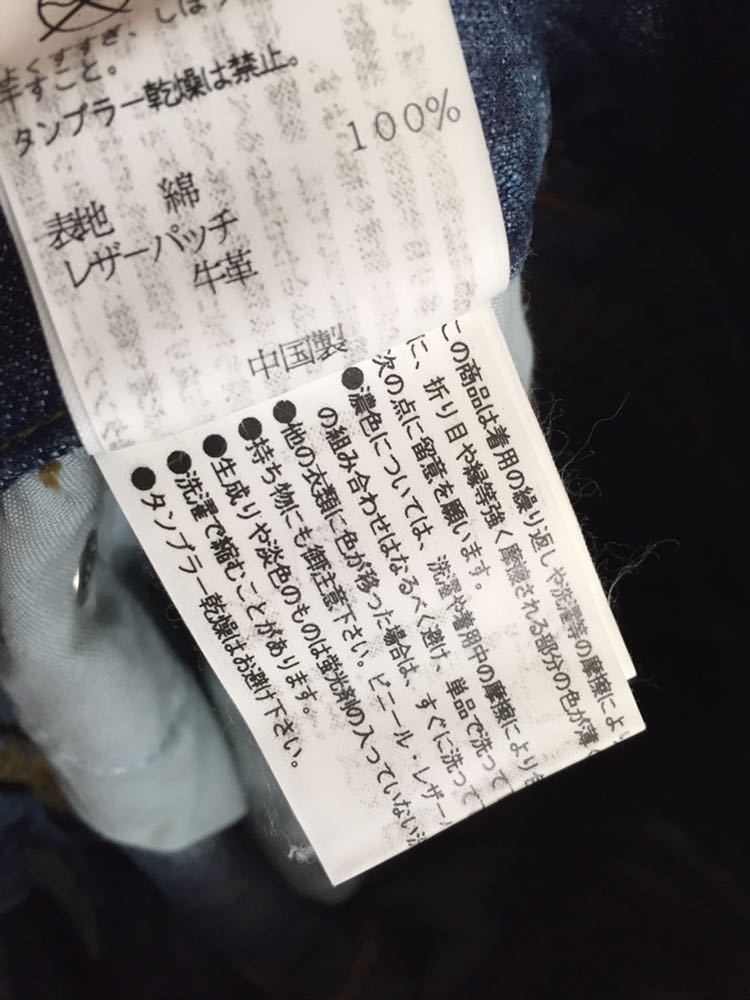 よくすすぎ、しぼっ
干すこと。
タンブラー乾燥は禁止。
表地 綿 100%
レザーパッチ
牛革
中国製
この商品は着用の繰り返しや洗濯等の摩擦により
に、折り目や縁等強く摩擦される部分の色が薄く
次の点に留意を願います。
●濃色については、洗濯や着用中の摩擦により色
の組み合わせはなるべく避け、単品で洗って
●他の衣類に色が移った場合は、すぐに洗って
●持ち物にも御注意下さい。ビニール・レザー
●生成りや淡色のものは蛍光剤の入っていない洗
●洗濯で縮むことがあります。
●タンブラー乾燥はお避け下さい。